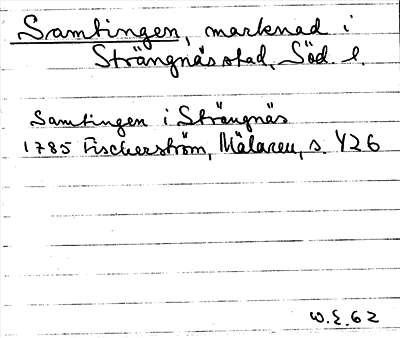 Samtingen, marknad i
Strängnäs stad, Söd. l.
Samtingen i Strängnäs
1785 Fischerström, Mälaren, s. 426
W.E. 62